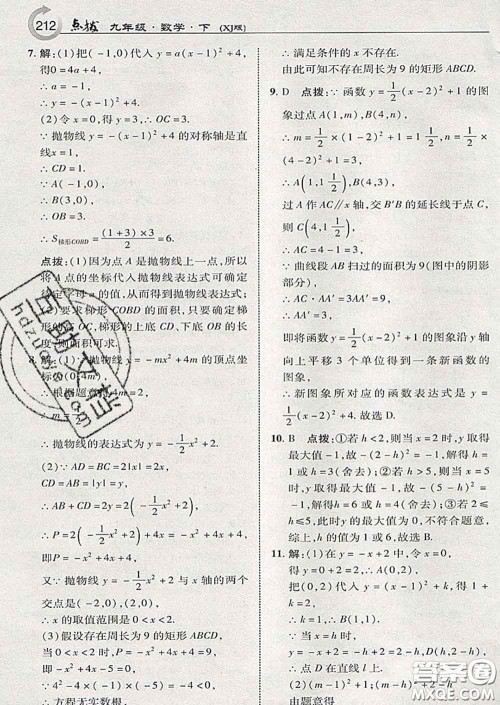 212 点拨 九年级·数学·下 (XJ版)
7. 解:(1)把(-1,0)代入,得
∴a=-1,
∴y=-(x-1)²+4.
(2)令x=0,得y=3,∴OC=3.
∵抛物线y=-(x-1)²+4的对称轴是
直线x=1,
∴CD=1.
∵A(-1,0),
∴B(3,0),
∴OB=3.
∴S梯形COBD=(1+3)×3/2=6.
点拨:(1)因为点A是抛物线上一点,所以
将A点的坐标代入抛物线表达式可确定
待定字母a的值,从而得到抛物线表达式.
(2)要求梯形COBD的面积,只要确定了
梯形的上底、下底和高就可以,
8. 解:(1)∵抛物线y=-mx²+4m的顶点坐
标为(0,4m),
∴根据题意
∴抛物线的表达式为y=-1/2x²+2.
(2)∵AD=BC=-1/2x²+2,
AB=CD=2x,
∴AB+CD=2x+2x=4x,
∴P=2(-1/2x²+2)+4x=-x²+4x+4,
即P=-x²+4x+4.
又∵抛物线y=-1/2x²+2与x轴的两个
交点是(-2,0),(2,0),
∴x的取值范围是0<x<2.
(3)假设存在周长为9的矩形ABCD,
当0<x<2时,-x²+4x+4=9,
即-x²+4x-5=0.
∵4²-4×(-1)×(-5)=-4<0,
∴方程无实数根,
∴满足条件的x不存在.
由此可知不存在周长为9的矩形ABCD.
9. D 点拨:∵函数y=1/2(x-2)²+1的图
象过点A(1,m),B(4,n),
∴m=1/2×(1-2)²+1=1 1/2,n=1/2×
(4-2)²+1=3,
∴A(1,1 1/2),B(4,3),
过A作AC∥x轴,交B′B的延长线于点C,
则C(4,1 1/2),
∴AC=4-1=3,
∵曲线段AB扫过的面积为9(图中的阴影
部分),
∴AC·AA′=3AA′=9,
∴AA′=3,
即将函数y=1/2(x-2)²+1的图象沿y轴
向上平移3个单位得到一条新函数的
图象,
∴新图象所对应的函数表达式是
y=1/2(x-2)²+4.故选D.
10. B 点拨:①若h<2,则当x=2时,y取得
最大值-1,
解得h=1或h=3(舍去);②若
y取得最大值0,不符合题意;
解得h=6或h=4(舍去).
综上,h的值为1或6,故选B.
11. 解:(1)在y=-x+2中,令x=0,
得y=2,∴A(0,2).
把(0,2)代入y=(x-1)²+m,得
1+m=2.
∴m=1.∴y=(x-1)²+1,
∴h=1,∴B(1,1).
(2)∵D(h,2-h),当x=h时,
y=-x+2=-h+2=2-h,
∴点D在直线l上.
由题意得
答案圈
MXQE.COM